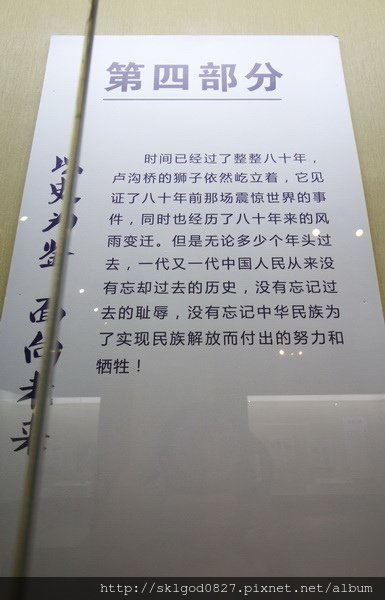 第四部分
以史为鉴 面向未来
时间已经过了整整八十年，
卢沟桥的狮子依然屹立着，它见
证了八十年前那场震惊世界的事
件，同时也经历了八十年来的风
雨变迁。但是无论多少个年头过
去，一代又一代中国人民从来没
有忘却过去的历史，没有忘记过
去的耻辱，没有忘记中华民族为
了实现民族解放而付出的努力和
牺牲！
http://sklgod0827.pixnet.net/album